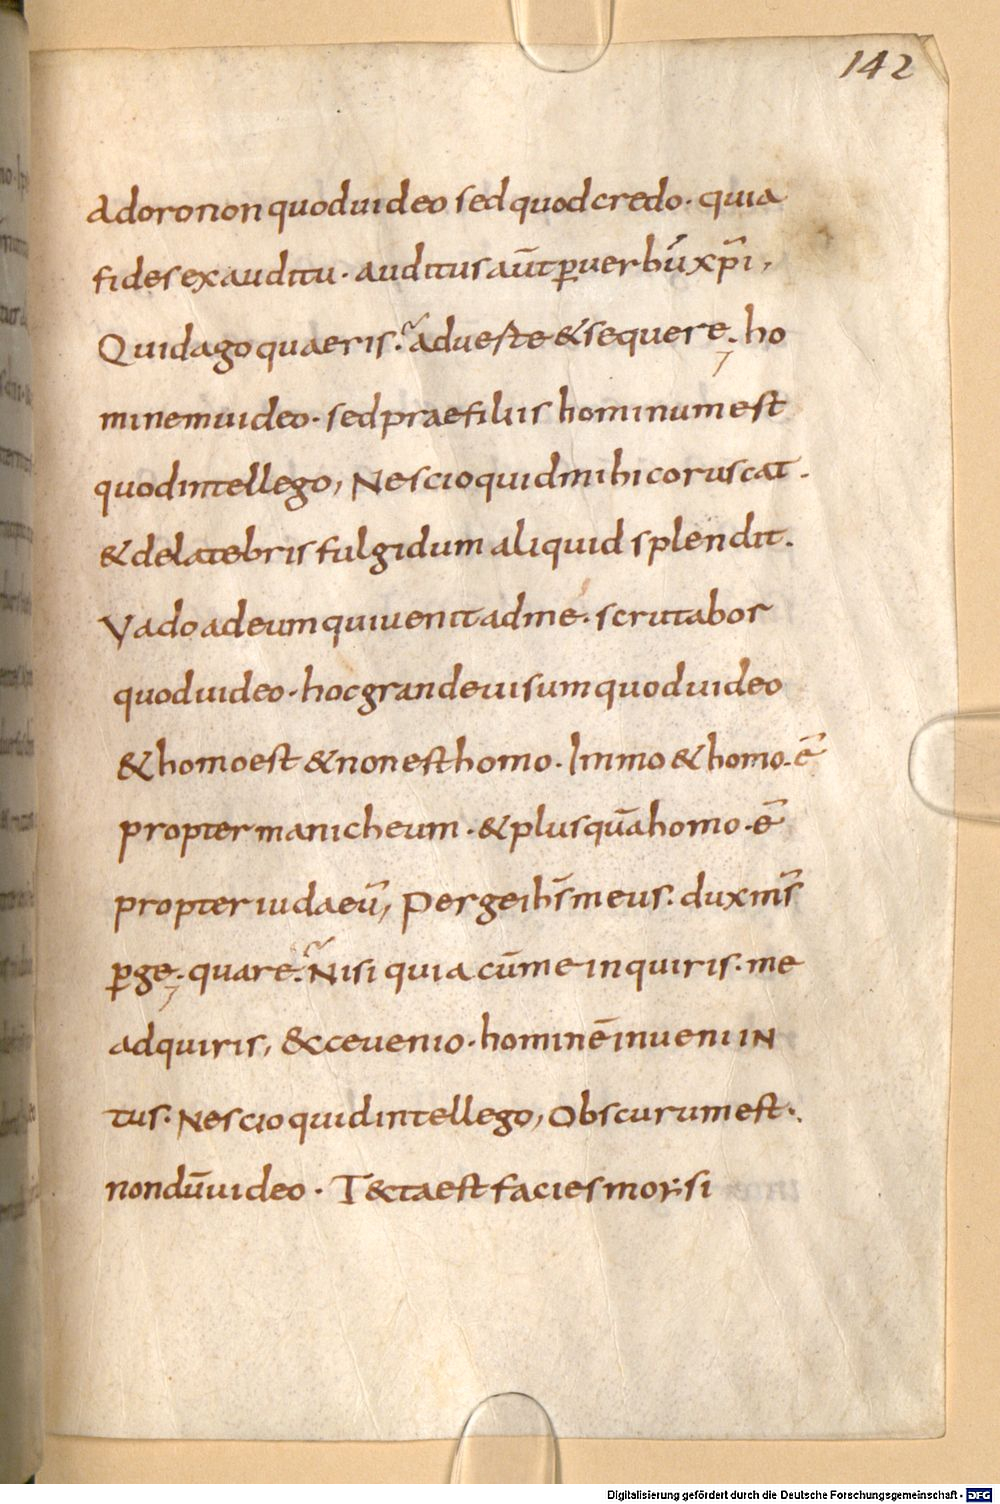 142
adoro non quod video sed quod credo · quia
fides ex auditu · auditus aūt ꝑ verbū xp̄i,
Quid ago quaeris? ad ueste & sequere; ho
minem uideo · sed prae filiis hominum est
quod intellego, Nescio quid mihi coruscat ·
& de latebris fulgidum aliquid splendit.
Vado ad eum qui uenit ad me · scrutabor
quod uideo · hoc grande uisum quod uideo
& homo est & non est homo · Immo & homo · ē
propter manicheum · & plus quā homo · ē
propter iudaeū, Perge ihs̄ meus · dux ms̄
ꝑge; quare? Nisi quia cū me inquiris · me
adquiris, &cce uenio · hominē inueni in
tus · Nescio quid intellego, Obscurum est ·
nondū uideo · T&cta est facies morsi
Digitalisierung gefördert durch die Deutsche Forschungsgemeinschaft - DFG